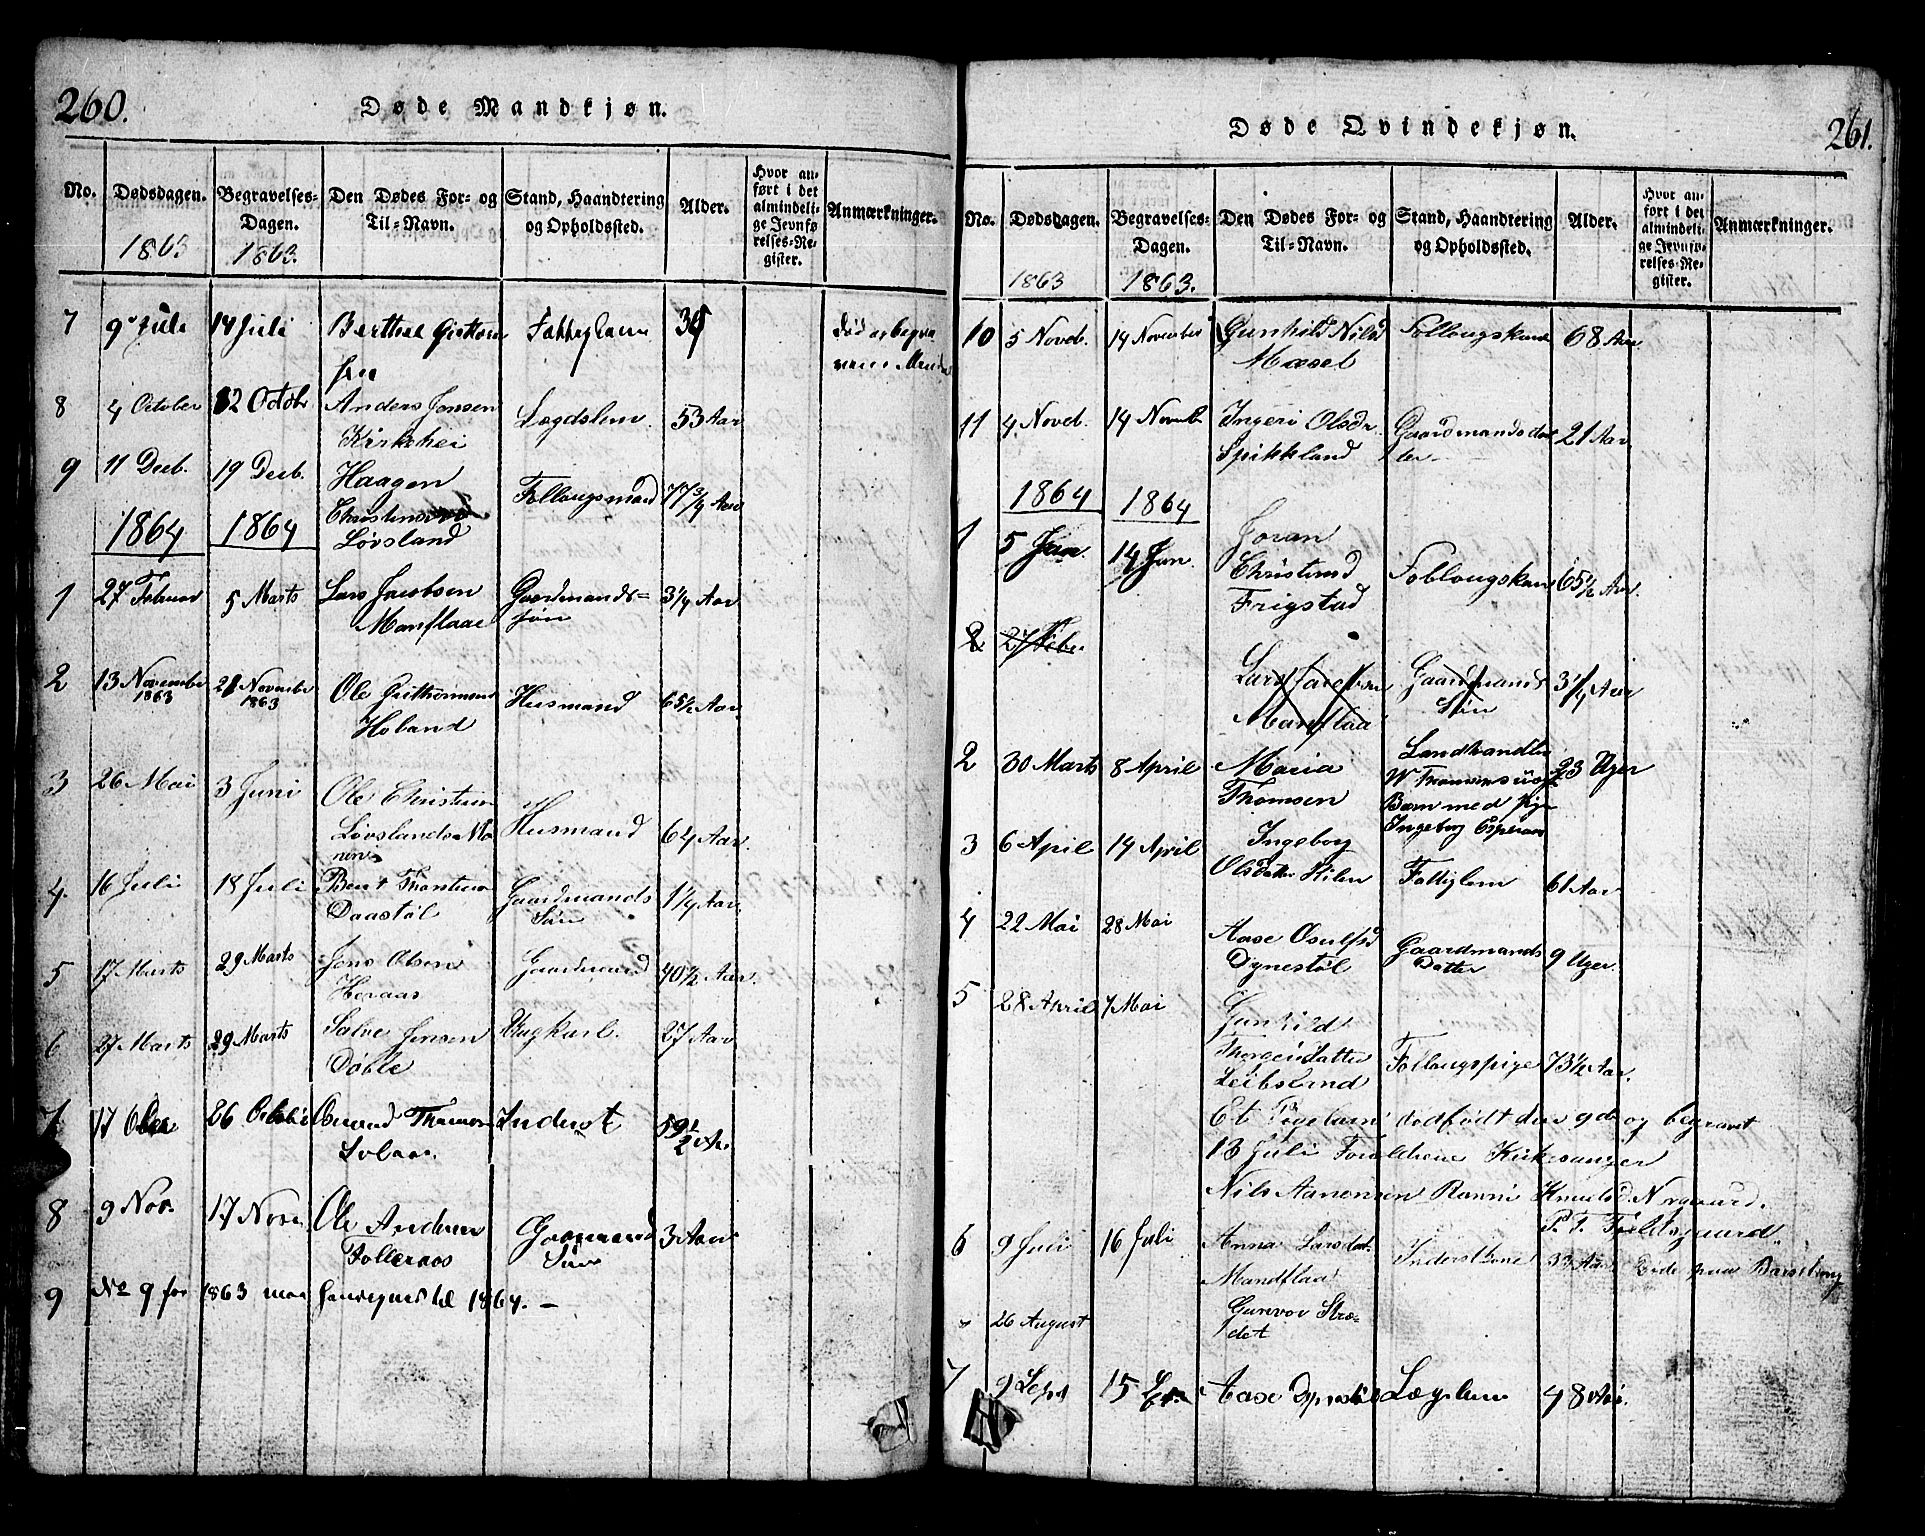 260.
Døde Mandkjøn.
No. Dødsdagen. Begravelses-Dagen. Den Dødes For- og Til-Navn. Stand, Haandtering og Opholdssted. Alder. Hvor anført i det almindelige Jevnførelses-Register. Anmærkninger.
1863 1863.
7 9 Juli 14 Juli Berthel
8 4 October 12 Octobr Anders Jensen Lægdslem 53 Aar
Kirkehei
9 11 Decb. 19 Decb. Haagen Follaugsmand 77 3/4 Aar
Christensen
Løvsland
1864 1864
1 27 Februar 5 Marts Lars Jacobsen Gaardmands= 3 1/4 Aar
Manflaae søn
2 13 November 21 November Ole Guthormsen Husmand 65 1/2 Aar
1863 1863 Høland
3 26 Mai 3 Juni Ole Christensen Husmand 64 Aar
Løvslands Mo
nen
4. 16 Juli 18 Juli Bent Thorsen Gaardmands 1 1/4 Aar.
Daastøl Søn
5 17 Marts 29 Marts Jens Olsen Gaardmand 40 1/2 Aar.
Heraas
6 27 Marts 29 Marts Salve Jensen Ungkarl. 27 Aar
Døble
7 17 26 Inderst 59 1/2 Ar.
8 9 Nov. 17 Nov. Ole Andersen Gaarmand 3 Aar
Tolleraas Søn
9 No 9 for 1863 maa til 1864. —
261.
Døde Qvindekjøn.
No. Dødsdagen. Begravelses-Dagen. Den Dødes For- og Til-Navn. Stand, Haandtering og Opholdssted. Alder. Hvor anført i det almindelige Jevnførelses-Register. Anmærkninger.
1863 1863.
10 5 Novb. 14 November Gunhild Nilsd Follougskone 68 Aar
Mæsel
11 4 Novb. 14 Novemb Ingeri Olsdr. Gaardmandsdat 21 Aar
Spikkland ter
1864 1864
1 5 Jan. 14 Jan. Joran Follougskone 65 1/2 Aar.
Christensd
Frigstad
2 27 Febr. Lars Jacobsen Gaardmands 3 1/4 Aar
Manflaa Søn
2 30 Marts 8 April Maria Landhandler 23 Uger
Thomsen W Thomsens uægt
Barn med Pige
Ingeborg Espersen
3 6 April 14 April Ingeborg Fattiglem 61 Aar
Olsdatter Hilen
4 22 Mai 28 Mai Aase Osulfsd Gaardmands 9 Uger
Dynestøl Datter
5 28 April 7 Mai Gunhild Follougspige 73 1/2 Aar.
Thorgersdatter
Leibsland
Et Pigebarn dødfødt den 9de og begravet
13 Juli Forældrene Kirkesanger
Nils Aanensen Ranni Knudsd Nygaard.
P. T. Foldsgaard.
6 9 Juli 16 Juli Anna Larsdat. Inderstkone 33 Aar Døde paa Barselseng
Mandflaa
26 August Gunvor Stræ-
det
7 9 Sept 15 Aase Dynestøl Læglem 48 Aar.